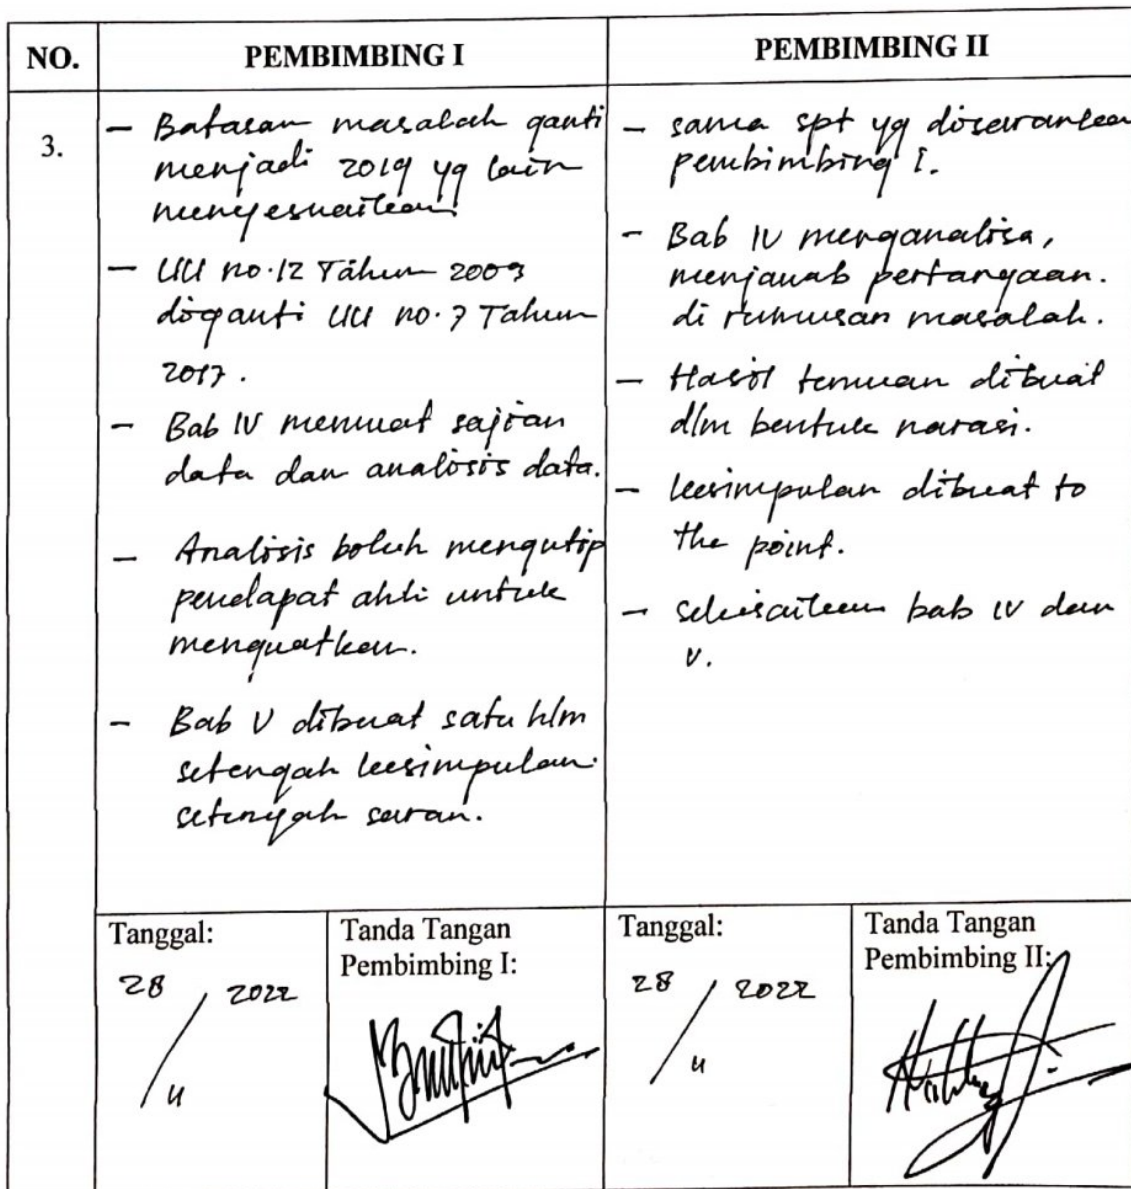 NO.
PEMBIMBING I
PEMBIMBING II
3.
- Batasan masalah ganti
menjadi 2019 yg lain
menyesuaikan!
- UU no.12 Tahun 2003
diganti UU no.7 Tahun
2017.
- Bab IV memuat sajian
data dan analisis data.
- Analisis boleh mengutip
pendapat ahli untuk
menguatkan.
- Bab V dibuat satu hlm
setengah kesimpulan
setengah saran.
- sama spt yg disarankan
pembimbing I.
- Bab IV menganalisa,
menjawab pertanyaan.
di rumusan masalah.
- Hasil temuan dibuat
dlm bentuk narasi.
- kesimpulan dibuat to
the point.
- selesaikan bab IV dan
V.
Tanggal:
28 / 2022
Tanda Tangan
Pembimbing I:
Tanggal:
28 / 2022
Tanda Tangan
Pembimbing II: